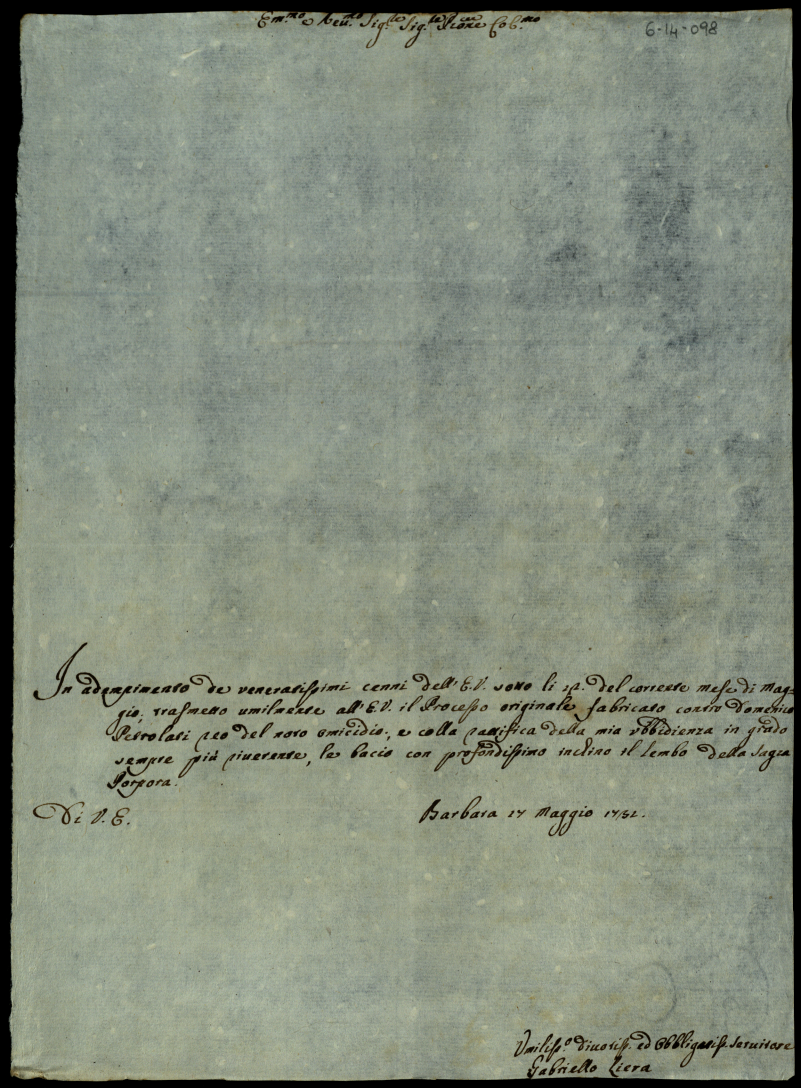 Em.mo e Reu.mo Sig.re Sig.re Prone Col.mo
6-14-098
In adempimento de veneratissimi cenni dell'E.V. sotto li 12. del corrente mese di Mag=
gio, trasmetto umilmente all'E.V. il Processo originale fabricato contro Domenico
Petrolati reo del noto omicidio, e colla rattifica della mia ubbidienza in grado
sempre più riuerente, le bacio con profondissimo inchino il Lembo della Sagra
Porpora.
Di V. E.
Barbara 17 Maggio 1752.
Vmiliss.o Diuotiss. ed Obbligatiss. Seruitore
Gabriello Liera